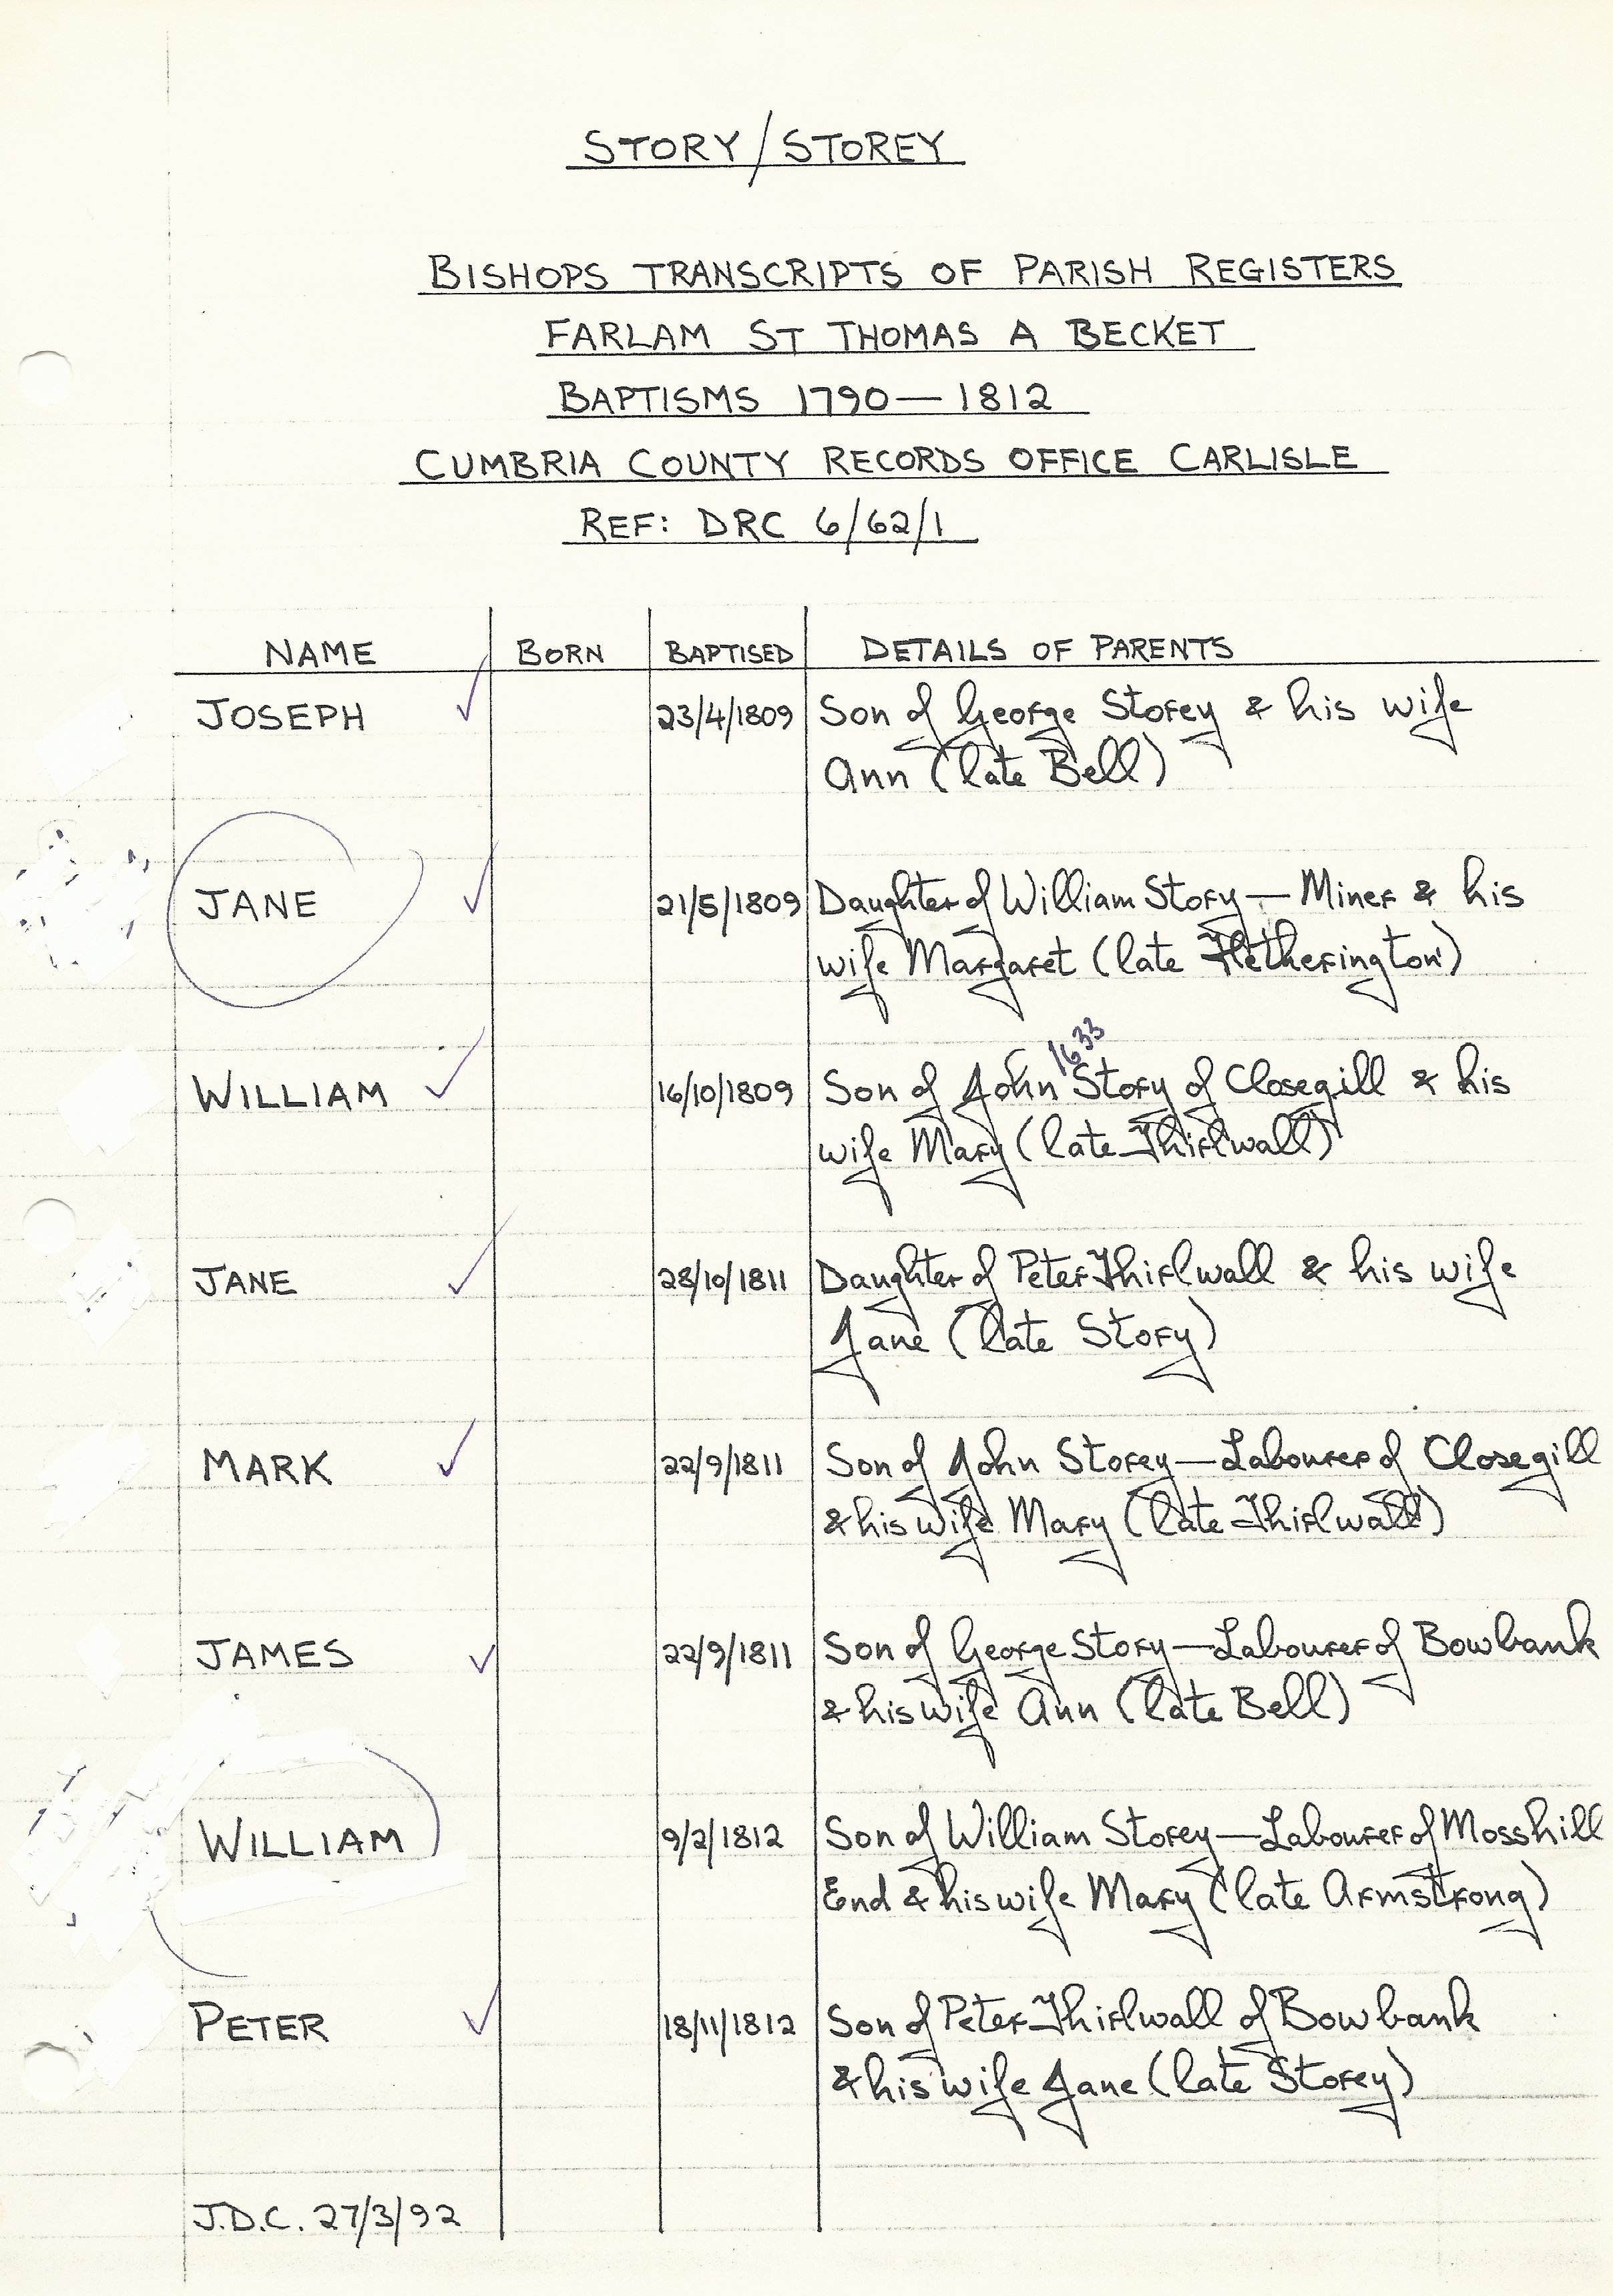 STORY/STOREY
BISHOPS TRANSCRIPTS OF PARISH REGISTERS
FARLAM ST THOMAS A BECKET
BAPTISMS 1790—1812
CUMBRIA COUNTY RECORDS OFFICE CARLISLE
REF: DRC 6/62/1
NAME BORN BAPTISED DETAILS OF PARENTS
JOSEPH 23/4/1809 Son of George Storey & his wife
Ann (late Bell)
JANE 21/5/1809 Daughter of William Story—Miner & his
wife Margaret (late Hetherington)
1633
WILLIAM 16/10/1809 Son of John Story of Closegill & his
wife Mary (late Thirlwall)
JANE 28/10/1811 Daughter of Peter Thirlwall & his wife
Jane (late Story)
MARK 22/9/1811 Son of John Storey—Labourer of Closegill
& his wife Mary (late Thirlwall)
JAMES 22/9/1811 Son of George Story—Labourer of Bowbank
& his wife Ann (late Bell)
WILLIAM 9/2/1812 Son of William Storey—Labourer of Mosshill
End & his wife Mary (late Armstrong)
PETER 18/11/1812 Son of Peter Thirlwall of Bowbank
& his wife Jane (late Storey)
J.D.C. 27/3/92